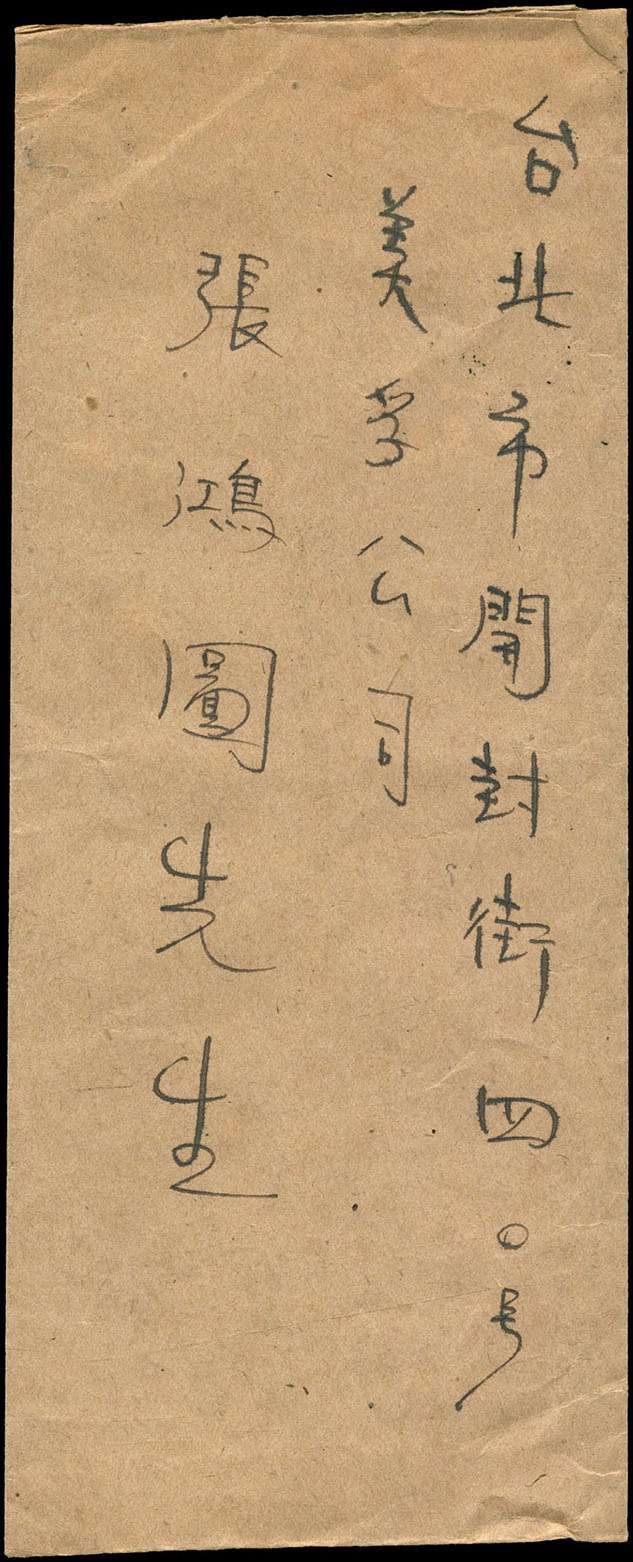 台北市開封街四〇号
美孚公司
張鴻圖先生